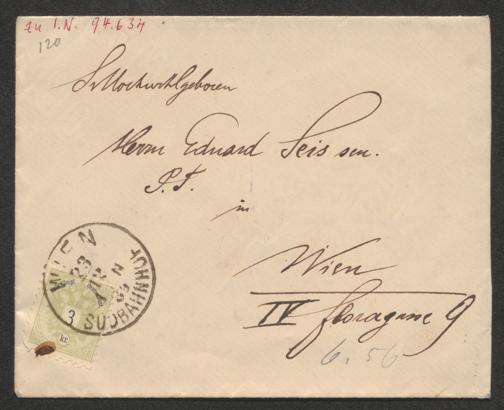 zu I.N. 94.634
120
Sr. Hochwohlgeboren
Herrn Eduard Seis sen.
P.T.
in
Wien
IV Floragasse 9
6.56
WIEN
23
12
N
3 SÜDBAHNHOF
kr.